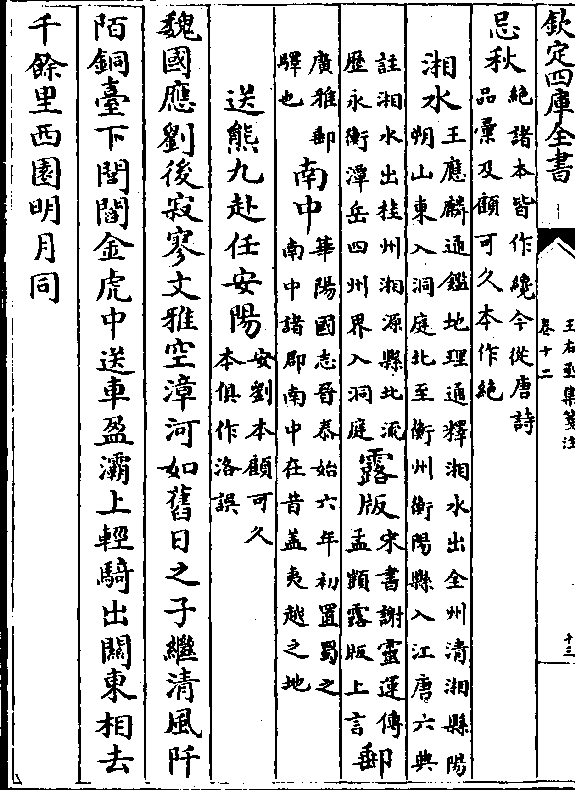 欽定四庫全書
王右丞集箋注
卷十二
十三
忌秋絶諸本皆作纔今從唐詩
品彙及顧可久本作絶
湘水王應麟通鑑地理通釋湘水出全州清湘縣陽
朔山東入洞庭北至衡州衡陽縣入江唐六典
註湘水出桂州湘源縣北流
歴永衡潭岳四州界入洞庭
露版宋書謝靈運傳
孟顗露版上言
郵
廣雅郵
驛也
南中華陽國志晉泰始六年初置蜀之
南中諸郡南中在昔盖夷越之地
送熊九赴任安陽安劉本顧可久
本俱作洛誤
魏國應劉後寂寥文雅空漳河如舊日之子繼清風阡
陌銅臺下閭閻金虎中送車盈灞上輕騎出關東相去
千餘里西園明月同